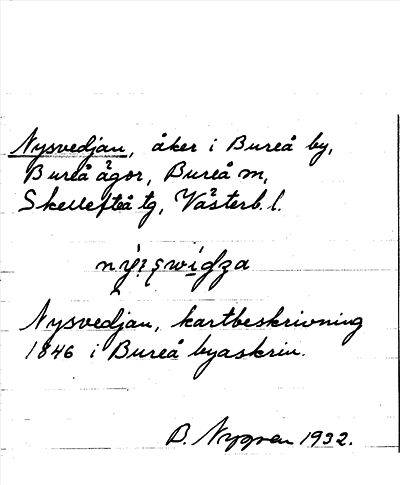 Nysvedjan, åker i Bureå by,
Bureå ägor, Bureå m,
Skellefteå tg, Västerb. l.
Nysvedjan, kartbeskrivning
1846 i Bureå byaskrin.
B. Nygren 1932.